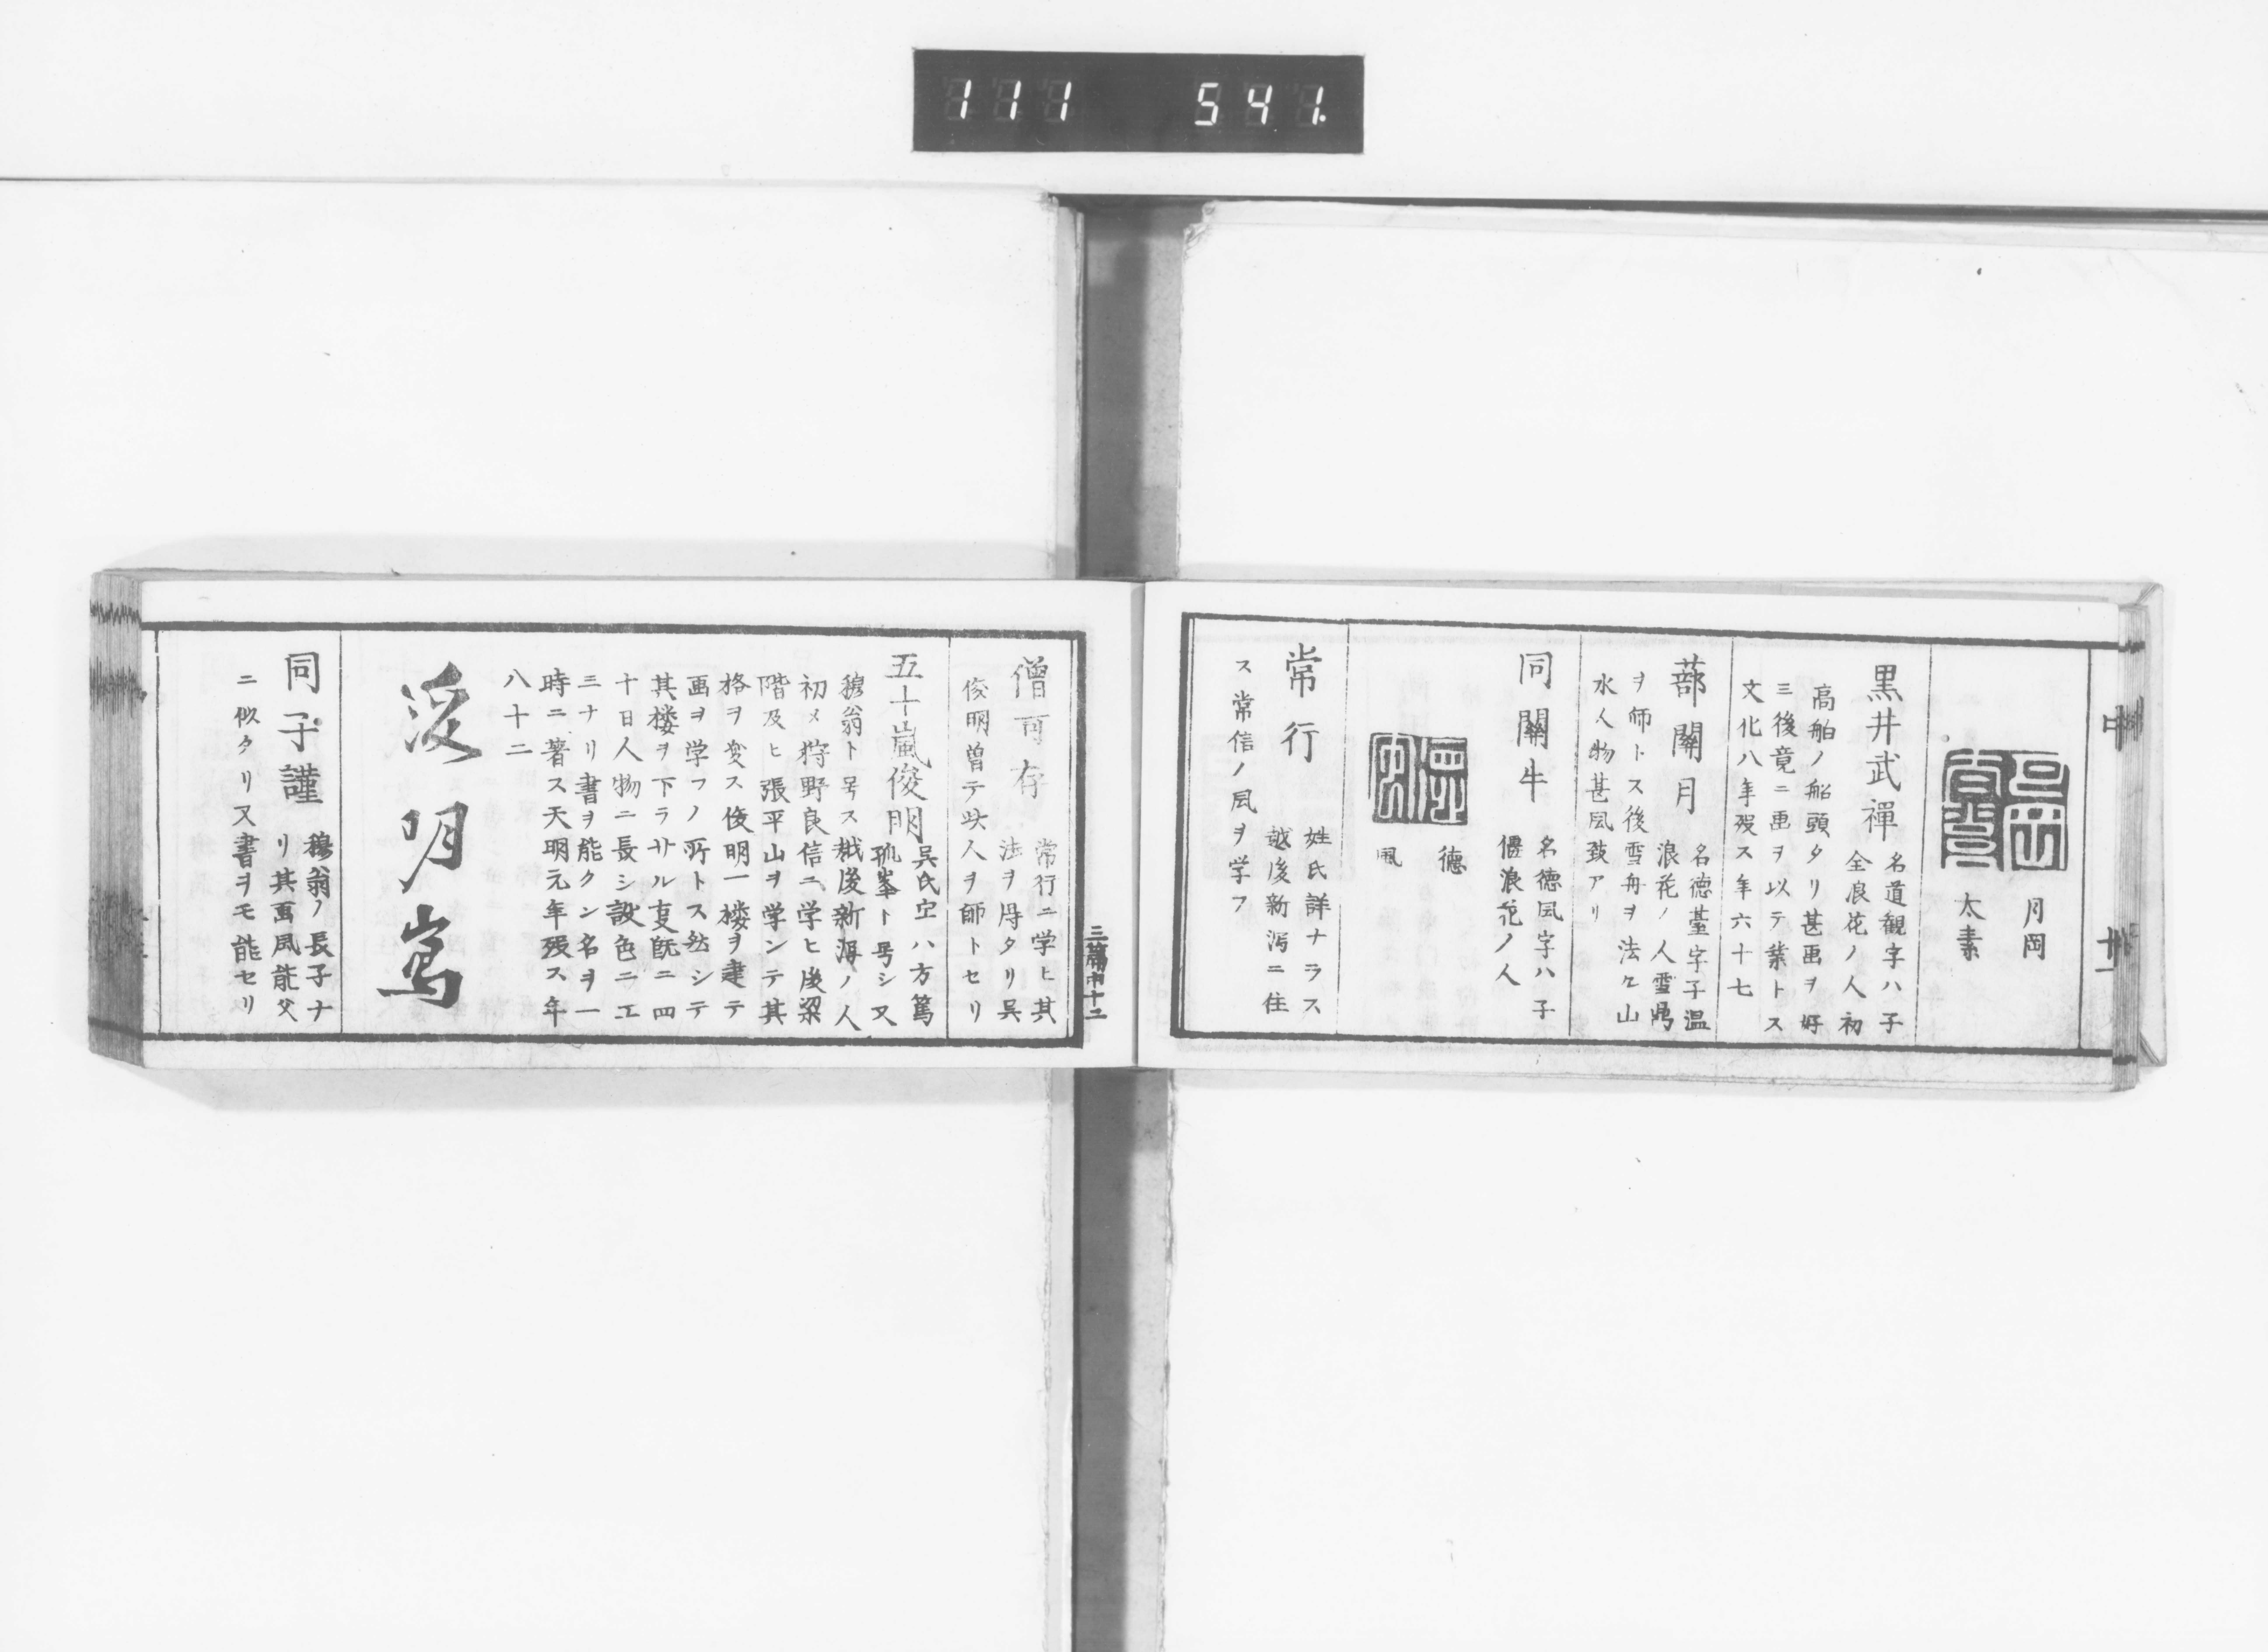 111 541.
中 廿一
月岡
太素
黒井武禪
名道観字ハ子
全浪花ノ人初
高舶ノ船頭タリ甚画ヲ好
三後竟ニ画ヲ以テ業トス
文化八年歿ス年六十七
蔀關月
名徳基字子温
浪花ノ人雪鼎
ヲ師トス後雪舟ヲ法ル山
水人物甚風致アリ
同關牛
名徳風字ハ子
偃浪花ノ人
徳
風
常行
姓氏詳ナラス
越後新潟ニ住
ス常信ノ風ヲ学フ
僧可存
常行ニ学ヒ其
法ヲ得タリ呉
俊明曽テ此人ヲ師トセリ
五十嵐俊明
呉氏字ハ方篤
孤峯ト号シ又
穆翁ト号ス越後新海ノ人
初メ狩野良信ニ学ヒ後梁
階及ヒ張平山ヲ学ンテ其
格ヲ変ス俊明一楼ヲ建テ
画ヲ学フノ所トス然シテ
其楼ヲ下ラサル叓既ニ四
十日人物ニ長シ設色ニ工
三ナリ書ヲ能クシ名ヲ一
時ニ著ス天明元年歿ス年
八十二
俊明寫
同子謹
穆翁ノ長子ナ
リ其画風能父
ニ似タリ又書ヲモ能セリ